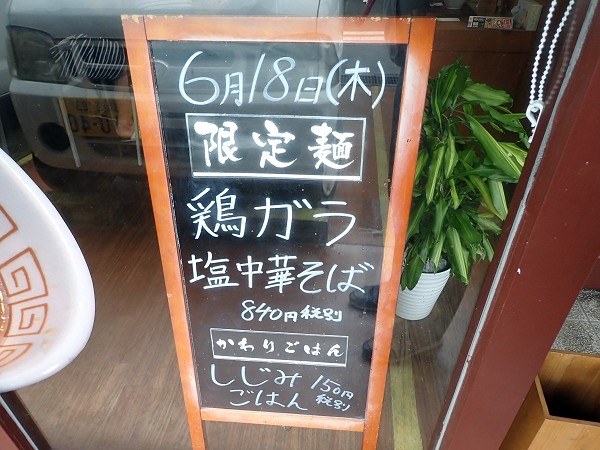 6月18日(木)
限定麺
鶏ガラ
塩中華そば
840円税別
かわりごはん
しじみ 150円
ごはん 税別